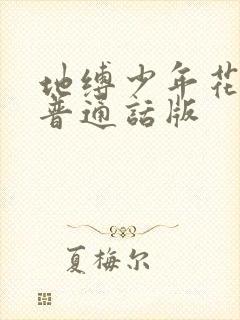 地缚少年花
普通話版
夏梅尔